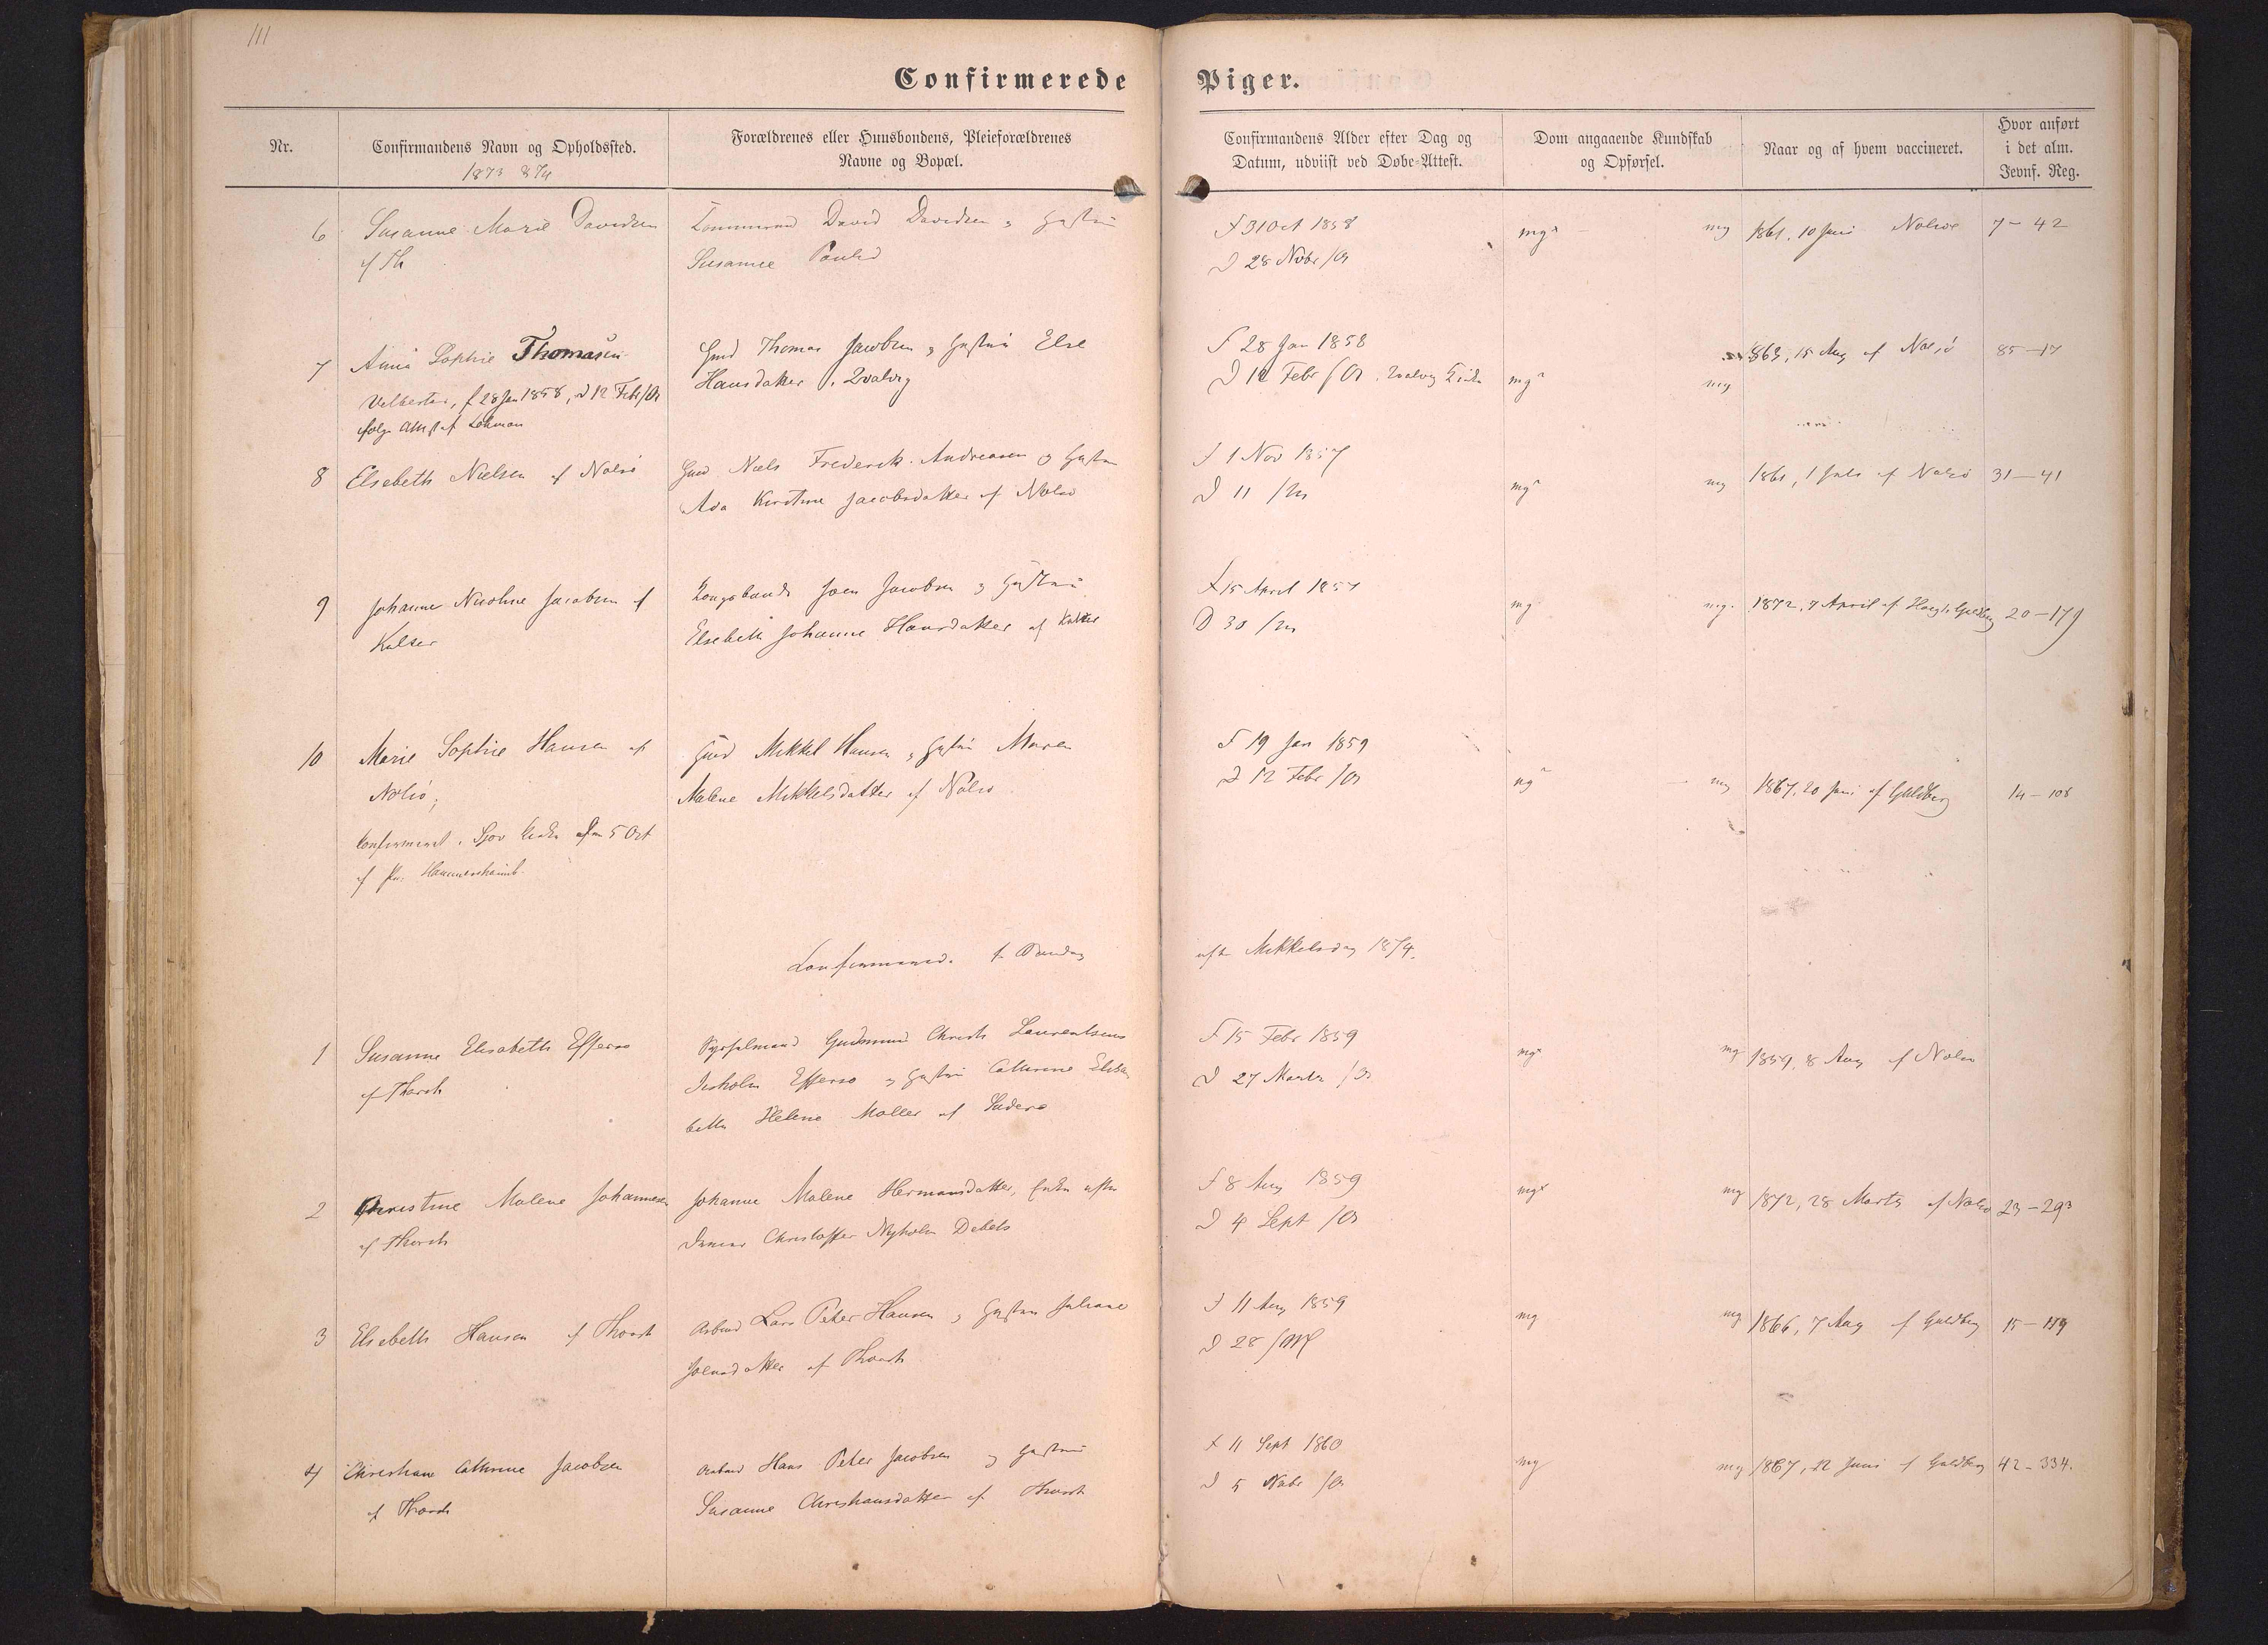 111
Confirmerede Piger.
Nr.
Confirmandens Navn og Opholdssted.
1873 874
Forældrenes eller Huusbondens, Pleieforældrenes
Navne og Bopæl.
Confirmandens Alder efter Dag og
Datum, udviist ved Døbe-Attest.
Dom angaaende Kundskab
og Opførsel.
Naar og af hvem vaccineret.
Hvor anført
i det alm.
Jevnf. Reg.
6 Susanne Marie Davidsen David Davidsen og Hustru f 31 Oct 1858 mgx mg 1861, 10 Juni Nolsøe 7-42
af Th Susanne Poulsd D 28 Nobr
7 Anna Sophie Thomasen Gmd Thomas Jacobsen og Hustru Else f 28 Jan 1858 863, 15 Aug af Nolsø 85-17
Hansdatter i Qvalvig D 12 Febr mgx mg
Velbestan, f 28 Jan 1858, D 12 Febr
8 Elsebeth Nielsen af Nolsø Gmd Niels Frederik Andreasen og Hustru f 1 Nov 1857 mgx mg 1861, 1 Juli af Nolsø 31-41
Ada Kirstine Jacobsdatter af Nolsø D 11
9 Johanne Jacobsen af Kongsbonde Joen Jacobsen og Hustru f 15 April 1857 mg mg. 1872, 7 April af 20-179
Kolter Elsebeth Johanne Hansdatter af Kolter D 30
10 Marie Sophie Hansen af Gmd Mikkel Hansen og Hustru Maren f 19 Jan 1859 mg mg 1867, 20 Juni af Guldberg 14-108
Nolsø; Malene Mikkelsdatter af Nolsø D 12 Febr
Confirmeret i 5 Oct
af Hammershaimb.
Confirmerede 1 Søndag efter Mikkelsdag 1874.
1 Susanne Elisabeth Effersø Sysselmand Gudmund Christi Laurentsens f 15 Febr 1859 mgx mg 1859, 8 Aug af Nolsø
af Thorsh Isholm Effersø og Hustru Cathrine Elisa D 27 Marts
beth Helene Møller af Suderø
2 Christine Malene Johannesen Johanne Malene Hermansdatter, Enke efter f 8 Aug 1859 mgx mg 1872, 28 Marts af Nolsø 23-293
af Thorsh Christoffer Nyholm Debels D 4 Sept
3 Elsebeth Hansen af Thorsh Arbmd Lars Peter Hansen og Hustru Juliane f 11 Aug 1859 mg mg 1866, 7 Aug af Guldberg 15-119
Joensdatter af Thorsh D 28
4 Christiane Cathrine Jacobsen Arbmd Hans Peter Jacobsen og Hustru f 11 Sept 1860 mg mg 1867, 22 Juni af Guldberg 42-334.
af Thorsh Susanne Christiansdatter af Thorsh D 5 Nobr